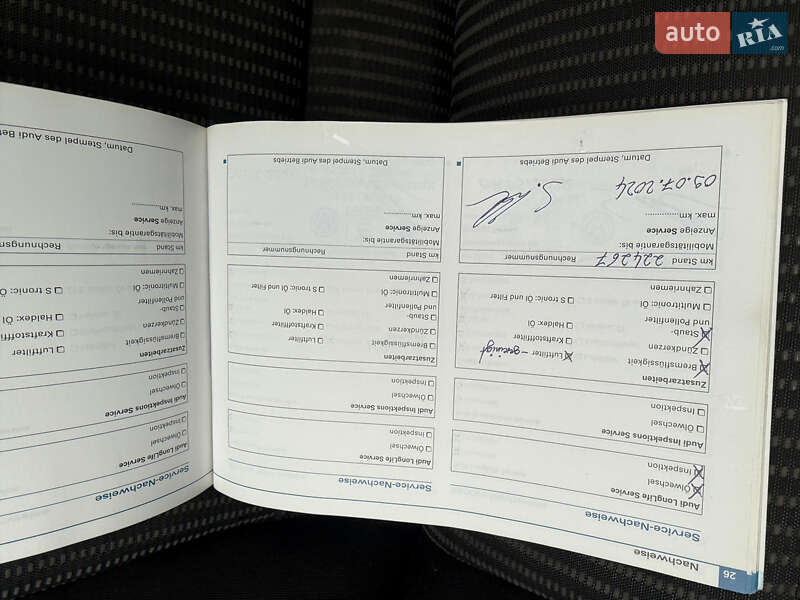 auto RIA .com
26
Nachweise
Service-Nachweise
Audi LongLife Service
Ölwechsel
Inspektion
Audi Inspektions Service
Ölwechsel
Inspektion
Zusatzarbeiten
Bremsflüssigkeit
Luftfilter – gereinigt
Zündkerzen
Kraftstofffilter
Staub-
und Pollenfilter
Haldex: Öl
Multitronic: Öl
S tronic: Öl und Filter
Zahnriemen
km Stand 224267 Rechnungsnummer
Mobilitätsgarantie bis:
Anzeige Service
max. km
09.07.2024
Datum, Stempel des Audi Betriebs
Service-Nachweise
Audi LongLife Service
Ölwechsel
Inspektion
Audi Inspektions Service
Ölwechsel
Inspektion
Zusatzarbeiten
Bremsflüssigkeit
Luftfilter
Zündkerzen
Kraftstofffilter
Staub-
und Pollenfilter
Haldex: Öl
Multitronic: Öl
S tronic: Öl und Filter
Zahnriemen
km Stand Rechnungsnummer
Mobilitätsgarantie bis:
Anzeige Service
max. km
Datum, Stempel des Audi Betriebs
Service-Nachweise
Audi LongLife Service
Ölwechsel
Inspektion
Audi Inspektions Service
Ölwechsel
Inspektion
Zusatzarbeiten
Bremsflüssigkeit
Luftfilter
Zündkerzen
Kraftstofffilter
Staub-
und Pollenfilter
Haldex: Öl
Multitronic: Öl
S tronic: Ö
Zahnriemen
km Stand Rechnung
Mobilitätsgarantie bis:
Anzeige Service
max. km
Datum, Stempel des Audi Betri